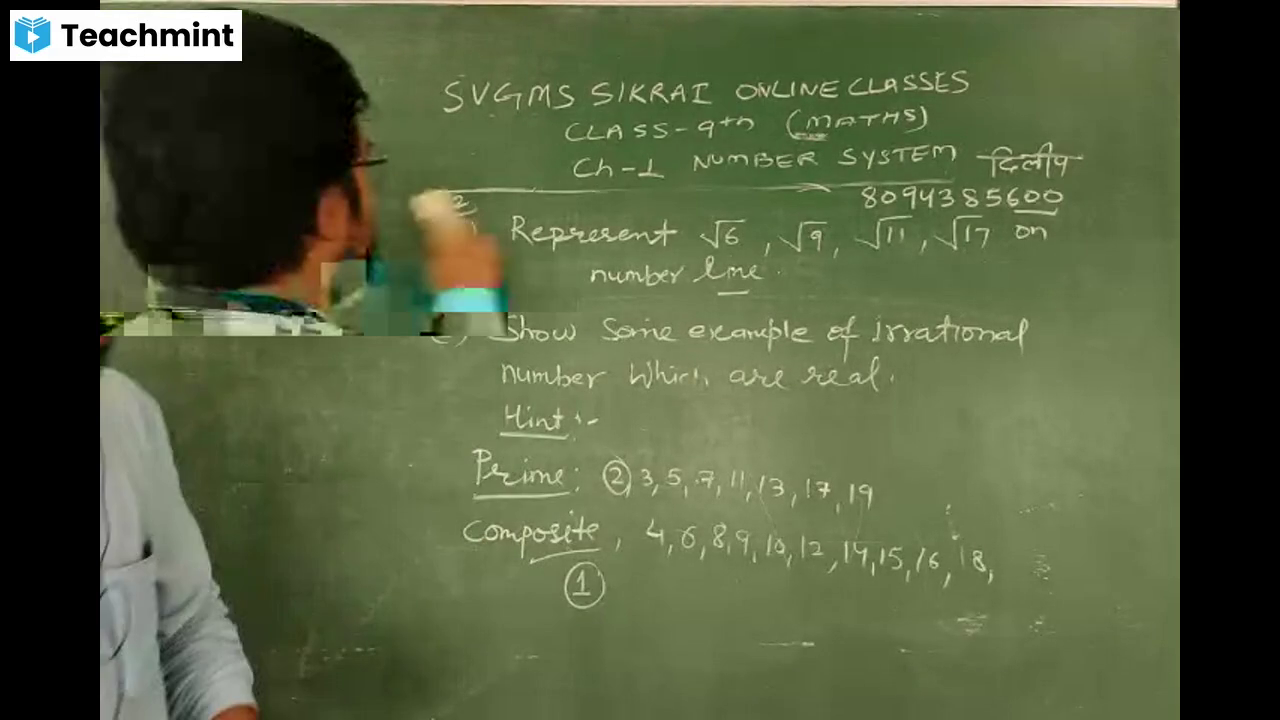 Teachmint
SVGMS SIKRAI ONLINE CLASSES
CLASS-9th (MATHS)
Ch-1 NUMBER SYSTEM दिलीप
8094385600
Represent √6, √9, √11, √17 on
number line.
Show some example of irrational
number which are real.
Hint :-
Prime: 2, 3, 5, 7, 11, 13, 17, 19
Composite, 4, 6, 8, 9, 10, 12, 14, 15, 16, 18,
1